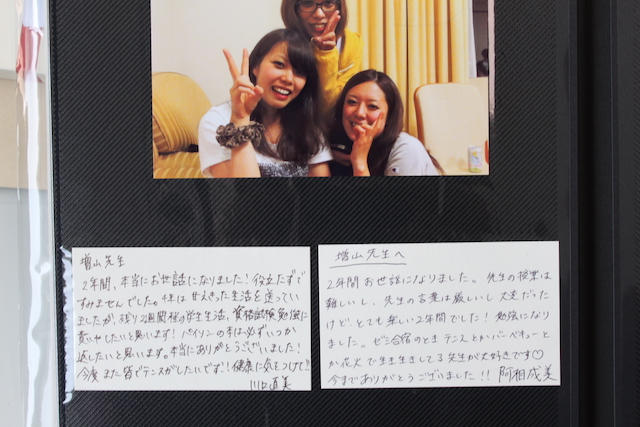 増山先生
2年間、本当にお世話になりました！役立たずで
すみませんでした。4年は甘えきった生活を送ってい
ましたが、残り2週間程の学生生活、資格試験勉強に
費やしたいと思います！パイソンの本は必ずいつか
返したいと思います。本当にありがとうございました！
今度また皆でテニスがしたいです！！健康に気をつけて！！
川口直美
増山先生へ
2年間お世話になりました。先生の授業は
難しいし、先生の言葉は厳しいし大変だった
けど、とても楽しい2年間でした！勉強になり
ました。ゼミ合宿のときテニスとかバーベキューと
か花火で生き生きしてる先生が大好きです♡
今までありがとうございました！！阿相成美